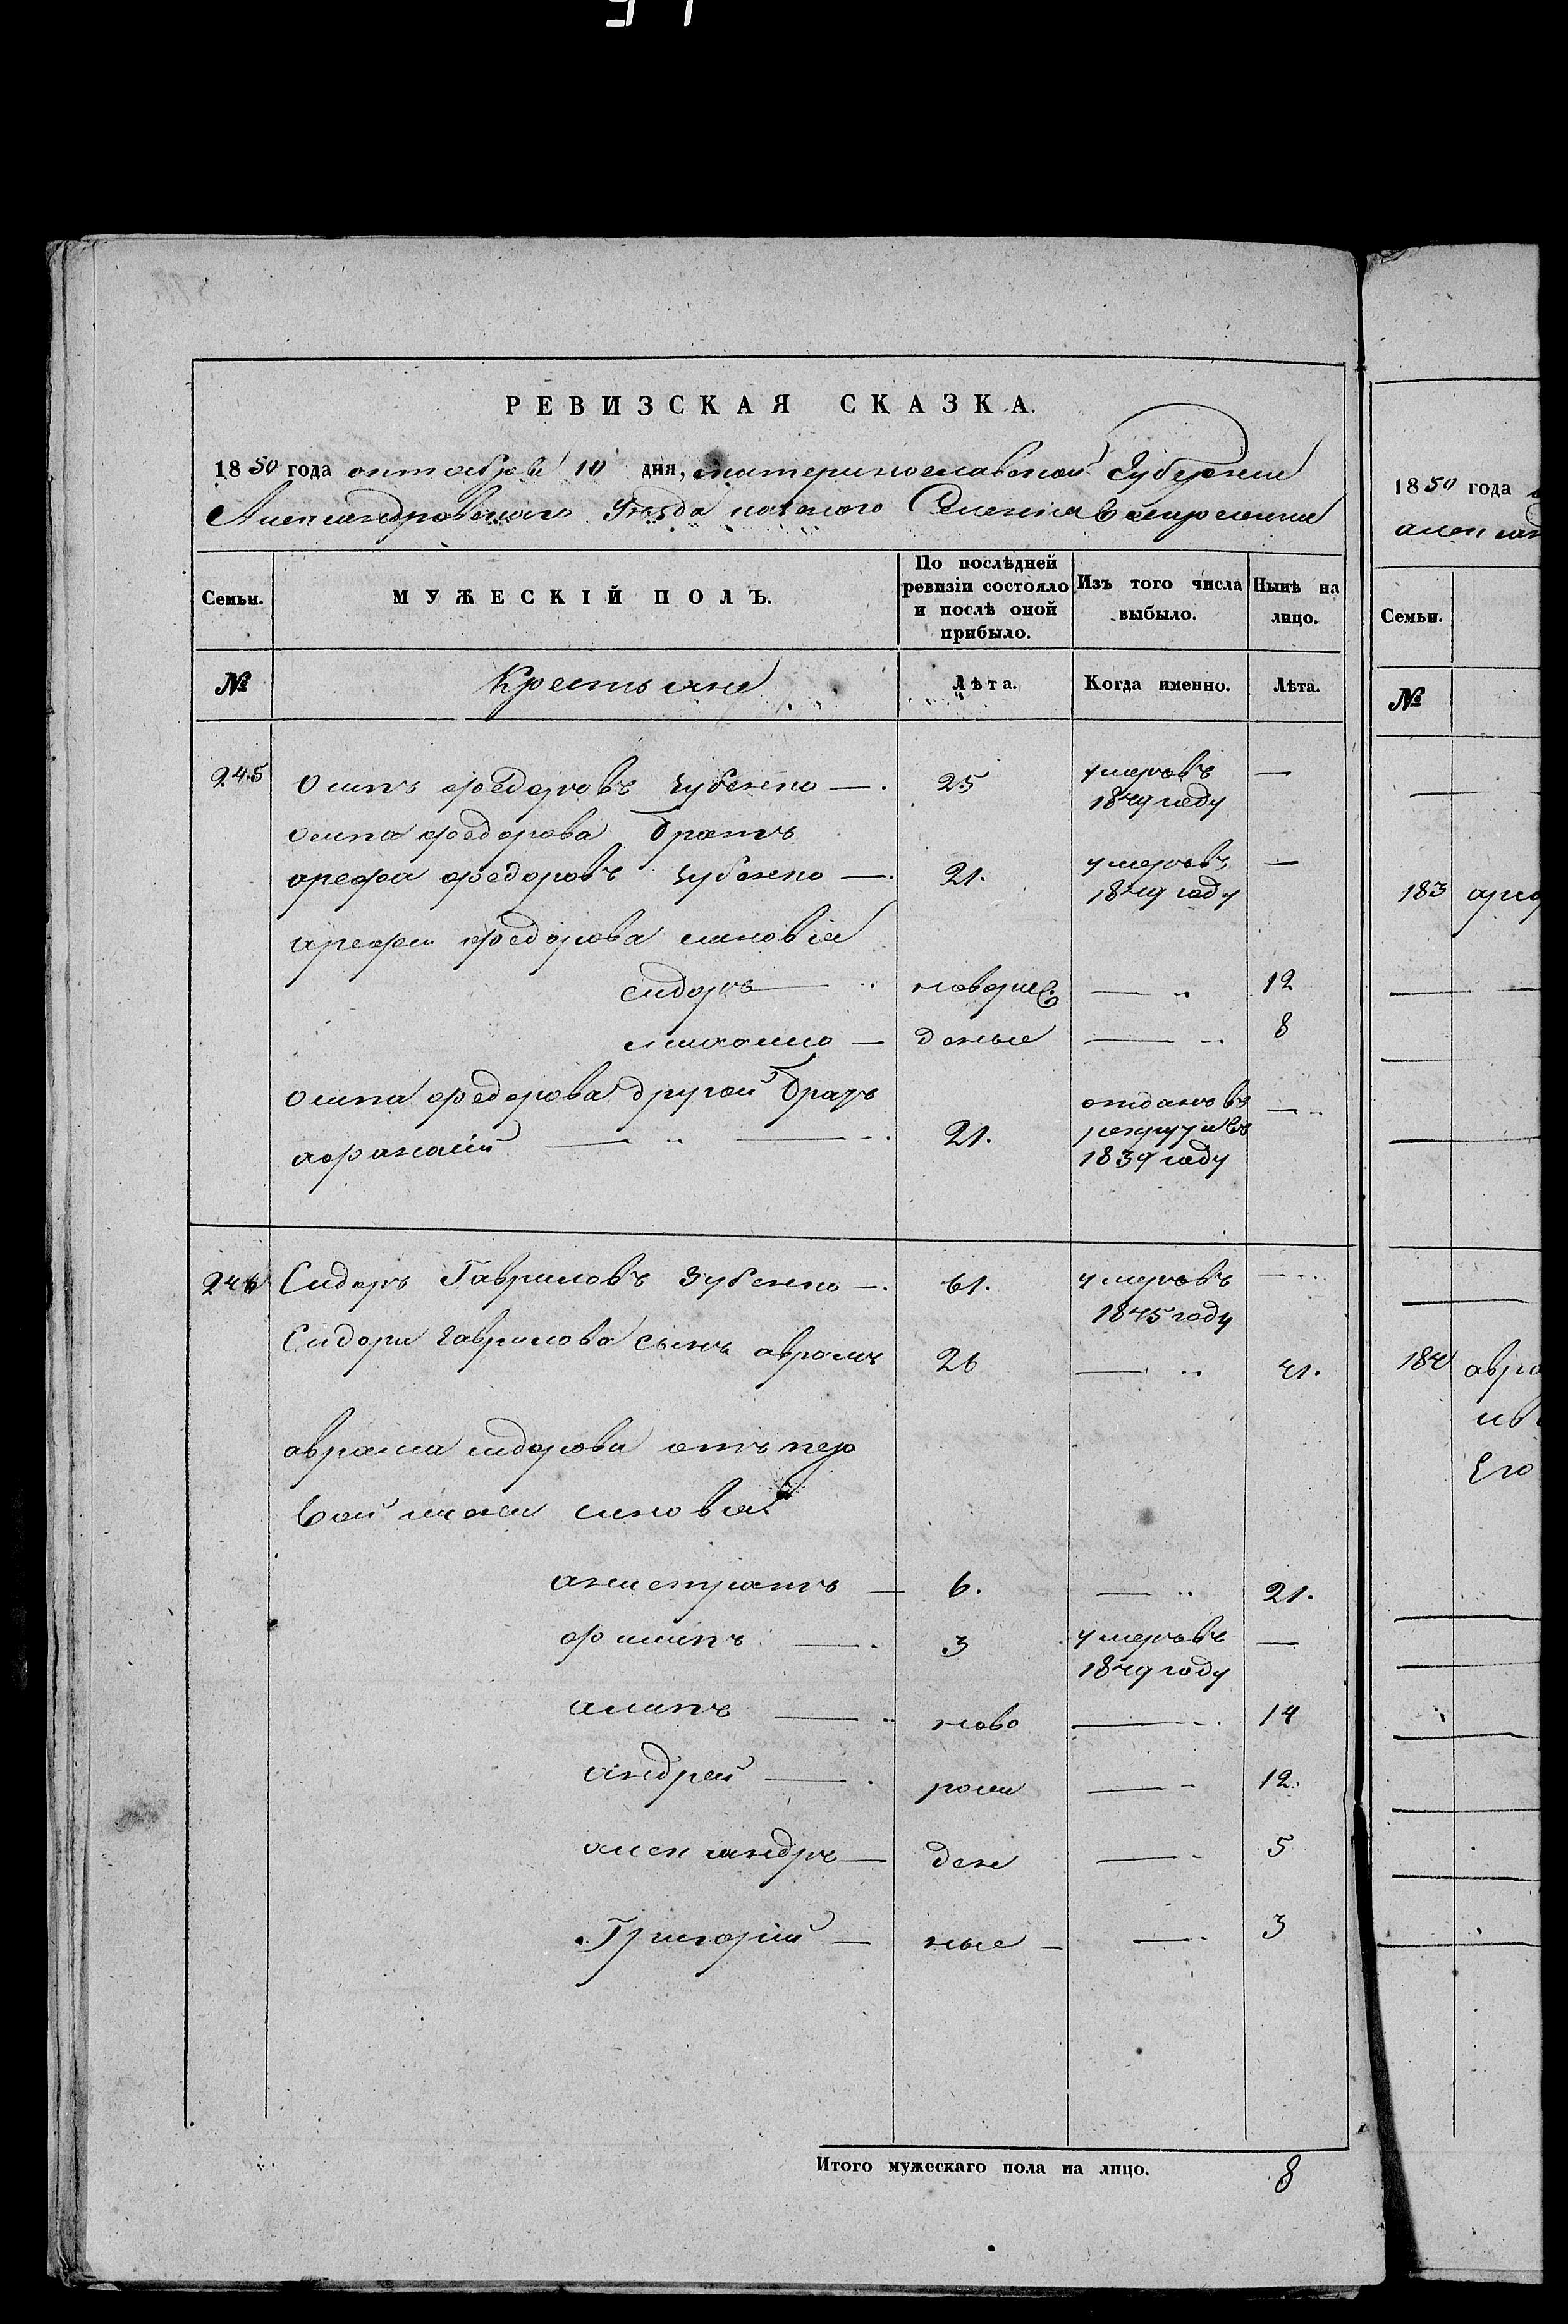 РЕВИЗСКАЯ СКАЗКА.
1850 года октября 10 дня, Екатеринославской Губернии
Александровского Уезда казенного Селения
Семьи.
МУЖЕСКІЙ ПОЛЪ.
По послѣдней ревизіи состояло и послѣ оной прибыло.
Изъ того числа выбыло.
Нынѣ на лицо.
№ Крестьяне Лѣта. Когда именно. Лѣта.
245 Осипъ федоровъ Зубенко —. 25 умеръ въ 1849 году —
осипа федорова братъ
арефа федоровъ Зубенко —. 21. умеръ въ 1849 году —
арефы федорова синовія
сидоръ — новорж — 12
михайло — деные — 8
осипа федорова другой братъ
афанасій — 21. отданъ въ рекруты въ 1839 году —
246 Сидоръ Гавриловъ Зубенко —. 61. умеръ въ 1845 году —
Сидора гаврилова сынъ аврамъ 26 — 41.
аврама сидорова отъ пер
вой жены синовія
анистратъ — 6. — 21.
филипъ — 3 умеръ въ 1849 году —
алипъ — ново — 14
андрей — рож — 12.
александръ — ден — 5
Григорій — ные — 3
Итого мужескаго пола на лицо. 8
1850 года
алексан
Семьи.
№
183 ареф
184 авра
Его